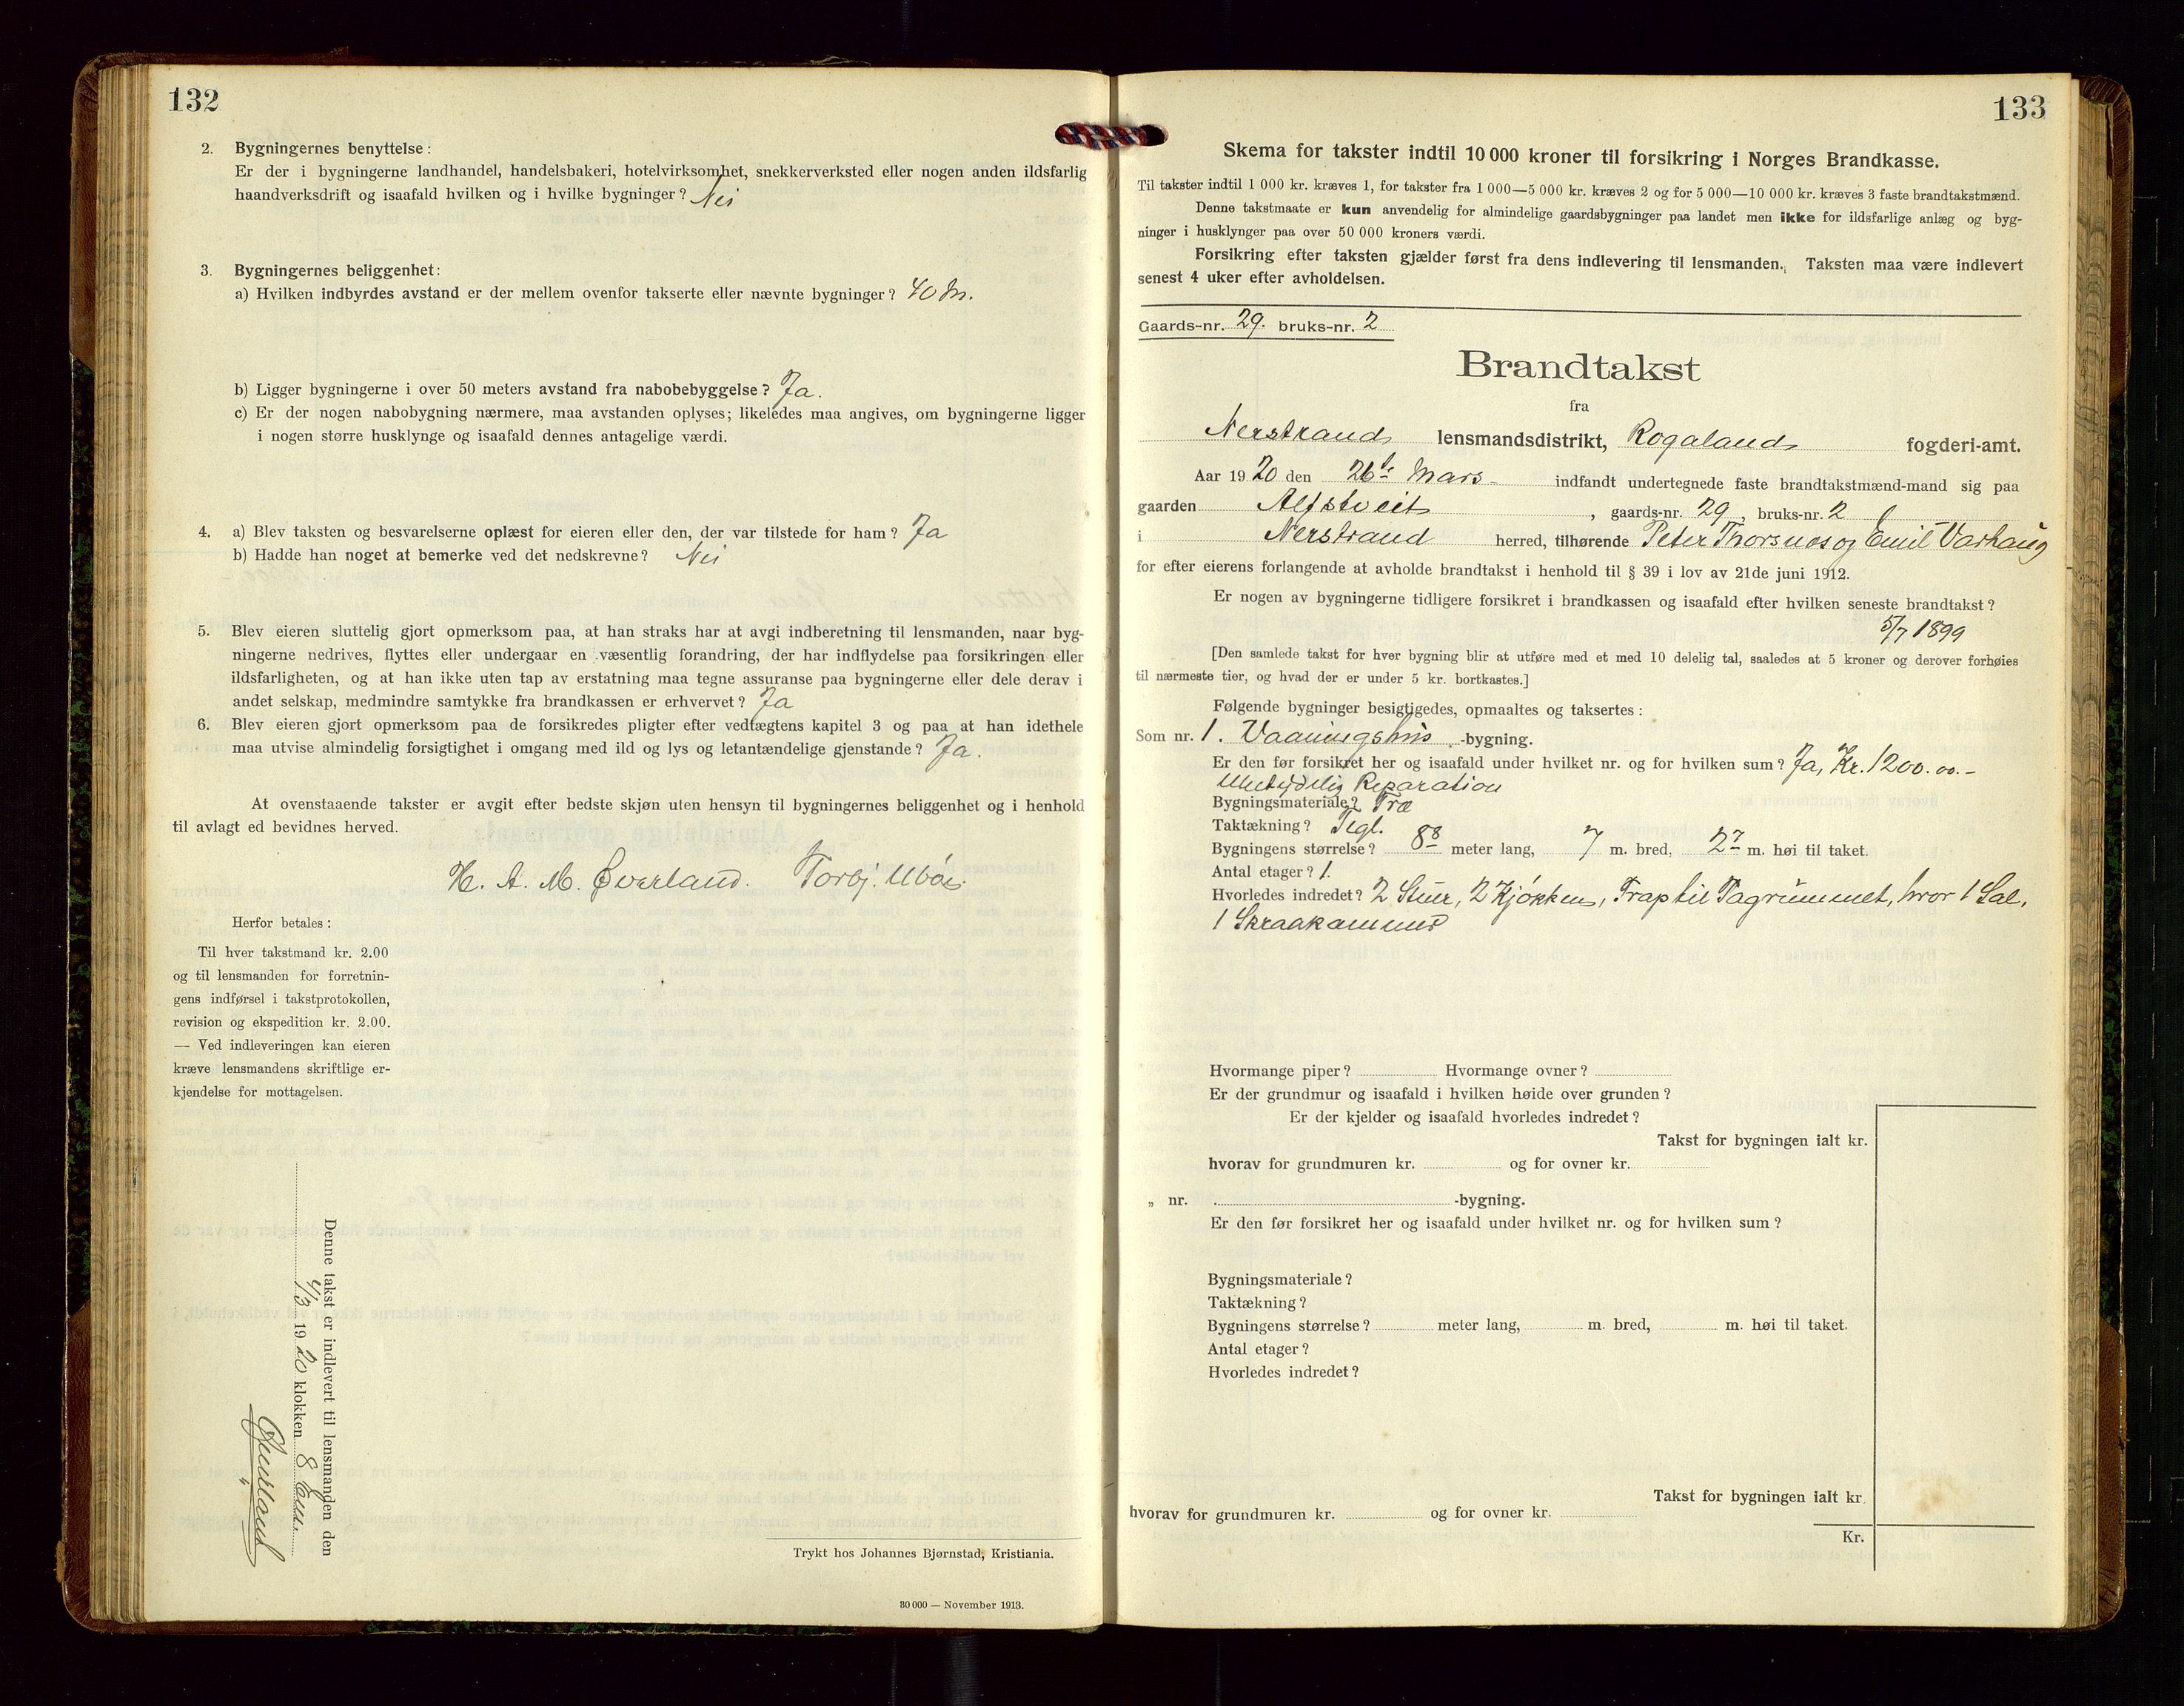 132
2. Bygningernes benyttelse:
Er der i bygningerne landhandel, handelsbakeri, hotelvirksomhet, snekkerverksted eller nogen anden ildsfarlig
haandverksdrift og isaafald hvilken og i hvilke bygninger? Nei
3. Bygningernes beliggenhet:
a) Hvilken indbyrdes avstand er der mellem ovenfor takserte eller nævnte bygninger? 40 M.
b) Ligger bygningerne i over 50 meters avstand fra nabobebyggelse? Ja.
c) Er der nogen nabobygning nærmere, maa avstanden oplyses; likeledes maa angives, om bygningerne ligger
i nogen større husklynge og isaafald dennes antagelige værdi.
4. a) Blev taksten og besvarelserne oplæst for eieren eller den, der var tilstede for ham? Ja
b) Hadde han noget at bemerke ved det nedskrevne? Nei
5. Blev eieren sluttelig gjort opmerksom paa, at han straks har at avgi indberetning til lensmanden, naar byg-
ningerne nedrives, flyttes eller undergaar en væsentlig forandring, der har indflydelse paa forsikringen eller
ildsfarligheten, og at han ikke uten tap av erstatning maa tegne assuranse paa bygningerne eller dele derav i
andet selskap, medmindre samtykke fra brandkassen er erhvervet? Ja
6. Blev eieren gjort opmerksom paa de forsikredes pligter efter vedtægtens kapitel 3 og paa at han idethele
maa utvise almindelig forsigtighet i omgang med ild og lys og letantændelige gjenstande? Ja.
At ovenstaaende takster er avgit efter bedste skjøn uten hensyn til bygningernes beliggenhet og i henhold
til avlagt ed bevidnes herved.
H. A. M. Øverland. Torbj.
Herfor betales:
Til hver takstmand kr. 2.00
og til lensmanden for forretnin-
gens indførsel i takstprotokollen,
revision og ekspedition kr. 2.00.
— Ved indleveringen kan eieren
kræve lensmandens skriftlige er-
kjendelse for mottagelsen.
Denne takst er indlevert til lensmanden den
4/3 1920 klokken 8 Em.
Trykt hos Johannes Bjørnstad, Kristiania.
30 000 — November 1913.
133
Skema for takster indtil 10 000 kroner til forsikring i Norges Brandkasse.
Til takster indtil 1 000 kr. kræves 1, for takster fra 1 000—5 000 kr. kræves 2 og for 5 000—10 000 kr. kræves 3 faste brandtakstmænd.
Denne takstmaate er kun anvendelig for almindelige gaardsbygninger paa landet men ikke for ildsfarlige anlæg og byg-
ninger i husklynger paa over 50 000 kroners værdi.
Forsikring efter taksten gjælder først fra dens indlevering til lensmanden. Taksten maa være indlevert
senest 4 uker efter avholdelsen.
Gaards-nr. 29. bruks-nr. 2
Brandtakst
fra
Nerstrand lensmandsdistrikt, Rogaland fogderi-amt.
Aar 1920 den 26de Mars indfandt undertegnede faste brandtakstmænd-mand sig paa
gaarden Alfstveit, gaards-nr. 29, bruks-nr. 2
i Nerstrand herred, tilhørende Peter Thorsnes og Emil Varhaug
for efter eierens forlangende at avholde brandtakst i henhold til § 39 i lov av 21de juni 1912.
Er nogen av bygningerne tidligere forsikret i brandkassen og isaafald efter hvilken seneste brandtakst?
5/7 1899
[Den samlede takst for hver bygning blir at utføre med et med 10 delelig tal, saaledes at 5 kroner og derover forhøies
til nærmeste tier, og hvad der er under 5 kr. bortkastes.]
Følgende bygninger besigtigedes, opmaaltes og taksertes:
Som nr. 1. Vaaningshus -bygning.
Er den før forsikret her og isaafald under hvilket nr. og for hvilken sum? Ja, Kr. 1200.00.-
Ubetydelig Reparation
Bygningsmateriale? Træ
Taktækning? Tegl.
Bygningens størrelse? 8 8 meter lang, 7 m. bred, 2 7 m. høi til taket.
Antal etager? 1.
Hvorledes indredet? 2 Stuer, 2 Kjøkken, Trap til Tagrummet, hvor 1 Sal,
1 Skraakammer
Hvormange piper? Hvormange ovner?
Er der grundmur og isaafald i hvilken høide over grunden?
Er der kjelder og isaafald hvorledes indredet?
Takst for bygningen ialt kr.
hvorav for grundmuren kr. og for ovner kr.
„ nr. -bygning.
Er den før forsikret her og isaafald under hvilket nr. og for hvilken sum?
Bygningsmateriale?
Taktækning?
Bygningens størrelse? meter lang, m. bred, m. høi til taket.
Antal etager?
Hvorledes indredet?
Takst for bygningen ialt kr.
hvorav for grundmuren kr. og for ovner kr.
Kr.